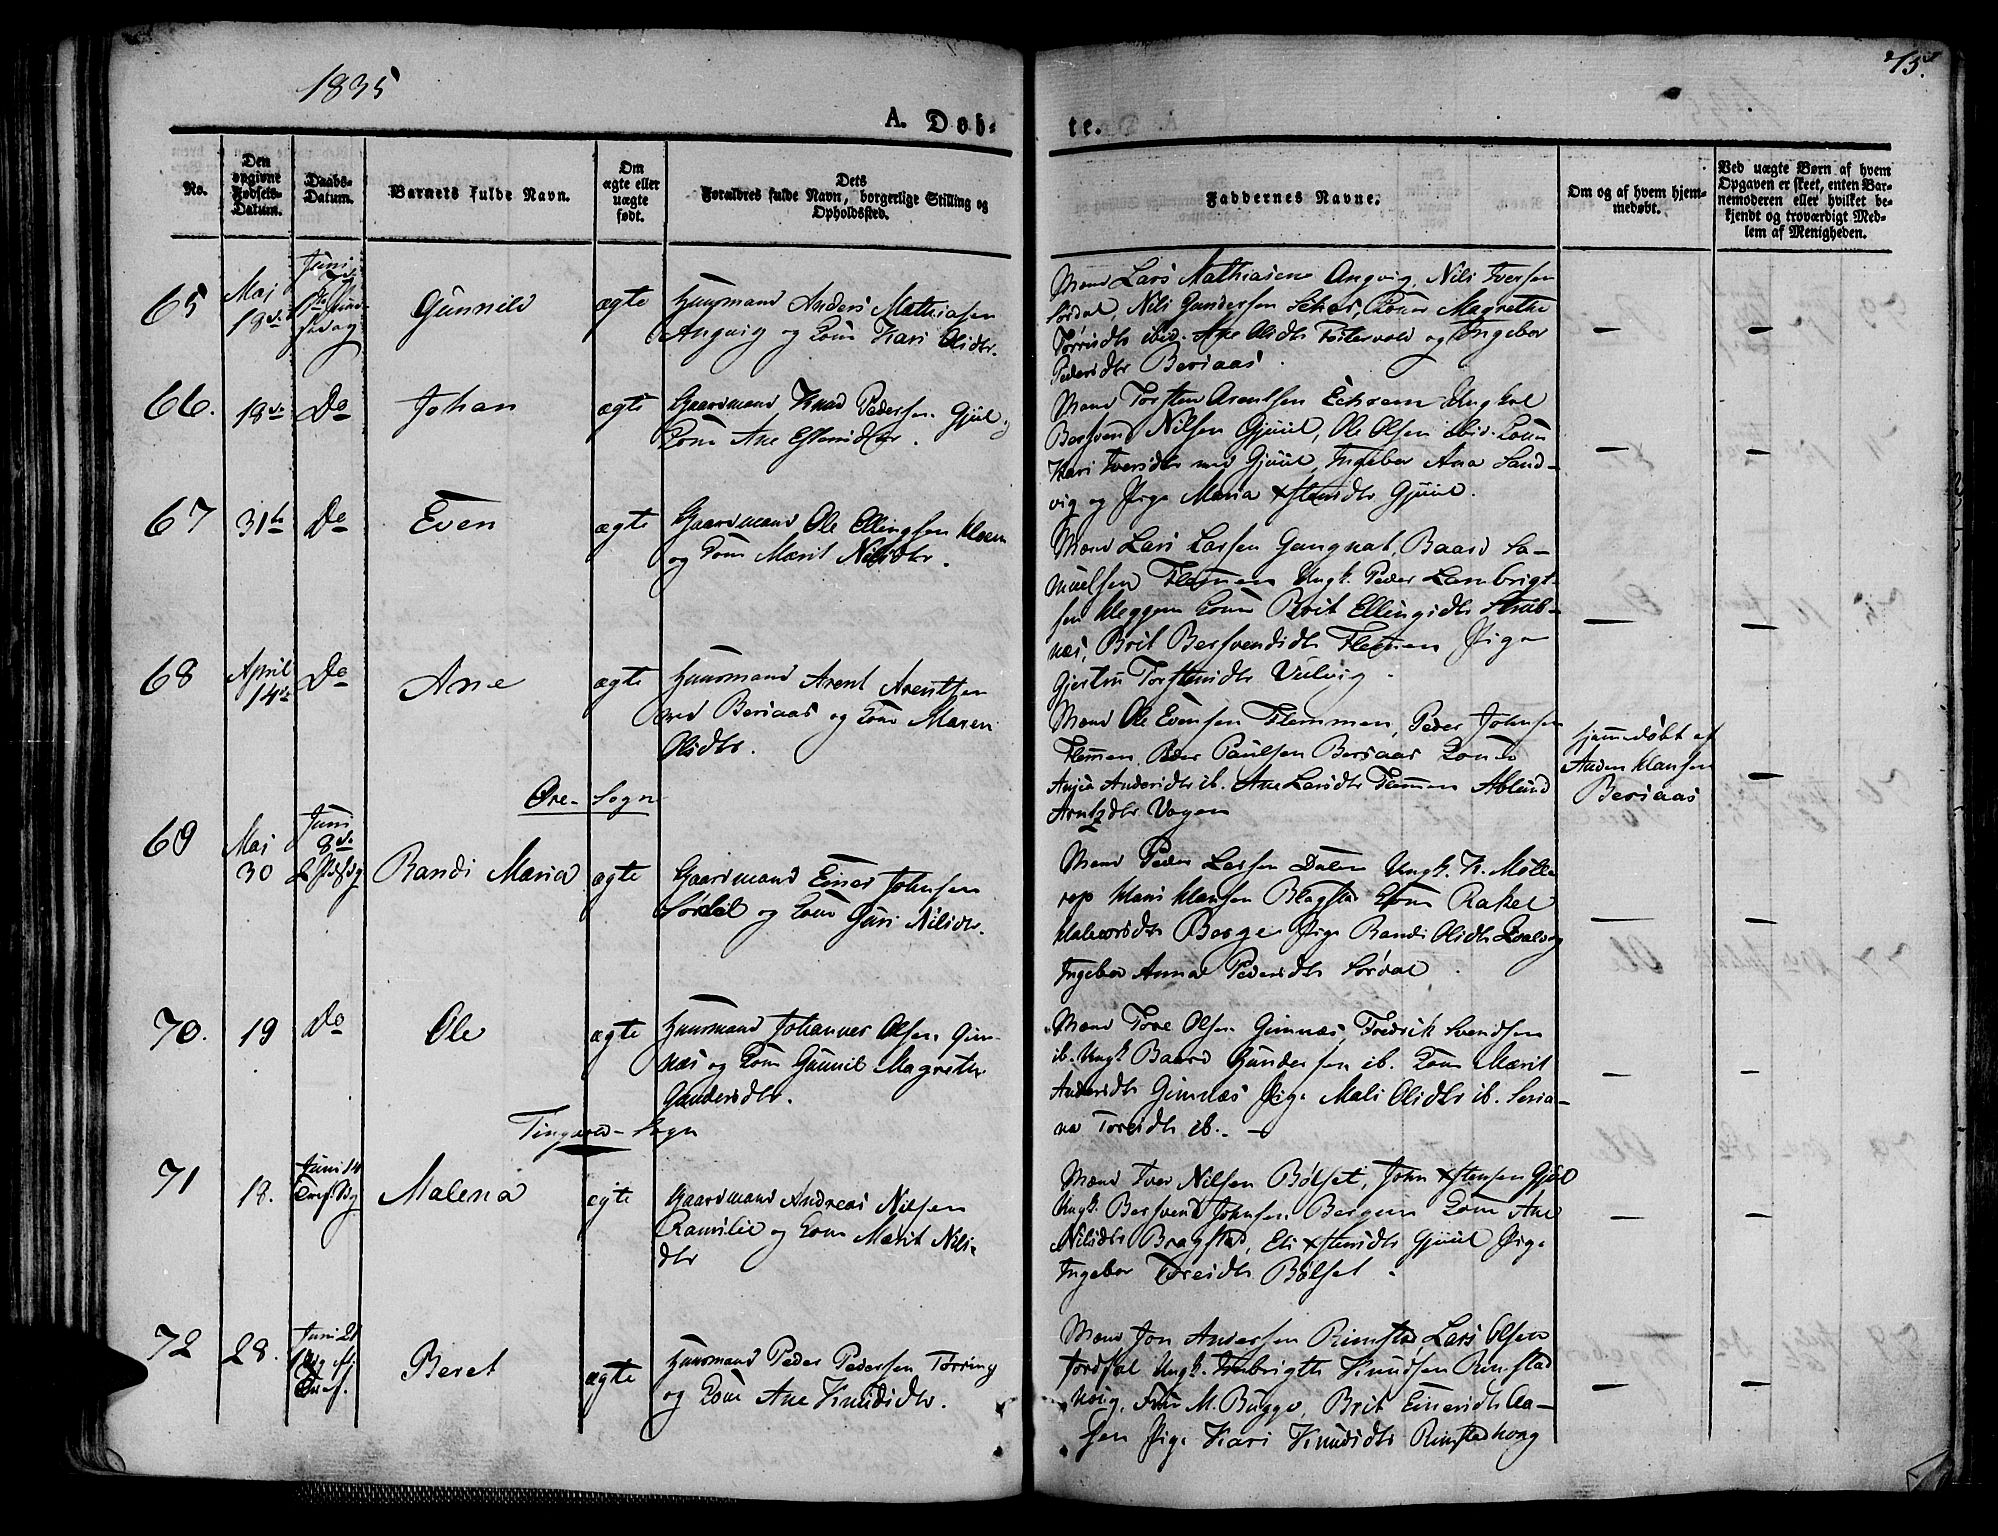 1835
75.
A. Døb-
te.
No.
Den opgivne Fødsels-Datum.
Daabs-Datum.
Barnets fulde Navn.
Om ægte eller uægte født.
Dets Forældres fulde Navn, borgerlige Stilling og Opholdssted.
Faddernes Navne.
Om og af hvem hjem-
medøbt.
Ved uægte Børn af hvem
Opgaven er skeet, enten Bar-
nemoderen eller hvilket be-
kjendt og troværdigt Med-
lem af Menigheden.
65
Mai
18de
Juni
7de
Gunnild
ægte
Huusmand Anders Mathiasen
Angvig og Kone Kari Olsdtr.
Mænd Lars Mathiasen Angvig, Nils Iversen
Sordal, Nils Gundersen Koner Magrethe
ibid. Ane Olsdtr og Ingebor
Pedersdtr Bersaas.
—
—
66.
18de
Do
Johan
ægte
Gaardmand Knud Pedersen Gjül og
Kone Ane
Mænd Torsten Arentsen Echrem Ungkal
Bersvend Nilsen Gjüül, Ole Olsen ibid. Kone
Kari Iversdtr ved Gjüül, Ingebor Ana Sand-
vig og Pige Maria Gjüül.
—
67
31te
Do
Even
ægte
Gaardmand Ole Ellingsen
og Kone Mærit Nilsdtr.
Mænd Lars Larsen Gangnat, Baard Sa-
muelsen Flemmen Ungk. Peder Lambrigt-
sen Kleggen Kone Brit Ellingsdtr
næs, Brit Bersvendsdtr Flemmen Pige
Gjertru Torstensdtr
—
—
68
April
14de
Do
Ane
ægte
Huusmand Arent Arentsen
ved Bersaas og Kone Maren
Olsdtr.
Mænd Ole Evensen Flemmen, Peder Johnsen
Flemmen, Peder Paulsen Bersaas Kone
Andersdtr ib. Ane Larsdtr Flemmen
Arntzdtr Vagen
hjemmedøbt af
Anders Hansen
Bersaas
—
Øre- Sogn
69
Mai
30
Juni
8de
Randi Maria
ægte
Gaardmand Einer Johnsen
og Kone Guri Nilsdtr.
Mænd Peder Larsen Dalen Ungk. H. Mølle
rop Hans Hansen Blagstad Kone Rakel
Halvorsdtr Borge Pige Randi Olsdtr
Ingebor Anna Pedersdtr Sordal.
—
—
70.
19
Do
Ole
ægte
Huusmand Johannes Olsen Gim-
næs og Kone Gunnil Magrethe
Gundersdtr.
Mænd Tore Olsen Gimnæs, Fredrik Svendsen
ib. Ungk Baard Gundersen ib. Kone Mærit
Andersdtr Gimnæs Pige Mali Olsdtr ib. Seria-
na Toresdtr ib. —
—
—
Tingvold- Sogn
71
18.
Juni 14
Malena
egte
Gaardmand Andreas Nilsen
og Kone Marit Nils-
dtr
Mænd Iver Nilsen Bølset, John Gjül
Ungk. Bersvend Johnsen Bergem Kone Ane
Nilsdtr Bragstad, Eli Gjüül Pige
Ingebor Toresdtr Bølset.
—
—
72
28.
Juni 21
Beret
ægte
Huusmand Peder Pedersen Torring
og Kone Ane Knudsdtr.
Mænd Jon Andersen Rimstad, Lars Olsen
Jordsal Ungk. Knudsen Rimstad
houg, Frue M. Bugge, Brit Einersdtr Aa-
sen Pige Kari Knudsdtr Rimstadhoug
—
—